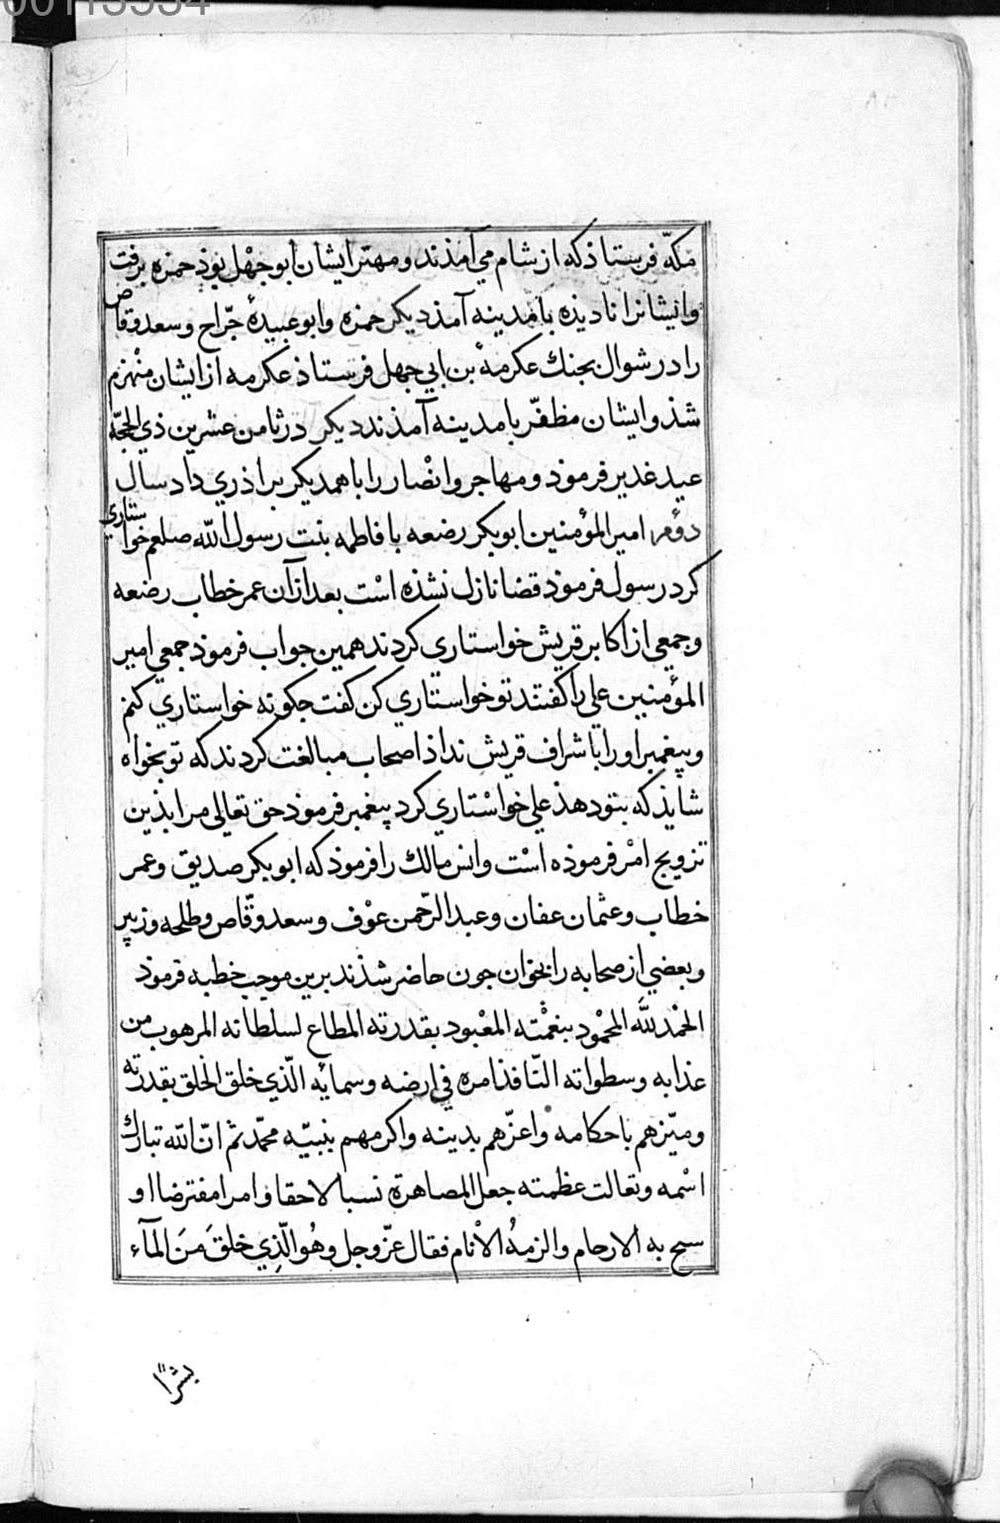 مكّه فرستاذ كه از شام مي آمذند و مهتر ايشان ابوجهْل بوذ حمزه برفت
وايشانرا ناديذه بامدينه آمذ ديكر حمزه وابوعبيدهٔ جرّاح وسعد وقاص
را در شوال بجنك عكرمهْ بن ابي جهل فرستاذ عكرمه از ايشان منْهزم
شذ وايشان مظفّر بامدينه آمذند ديكر در ثامن عشرين ذي الحجّه
عيد غدير فرموذ ومهاجر وانْصار را باهمديكر براذري داد سال
دوّم امير المؤمنين ابوبكر رضعه بافاطمه بنت رسول اللّه صلعم خواستاري
كرد رسول فرموذ قضا نازل نشذه اسْت بعد از آن عمر خطاب رضعه
وجمعي از اكابر قريش خواستاري كردند همين جواب فرموذ جمعي امير
المؤمنين علي را كفتند تو خواستاري كن كفت جكونه خواستاري كنم
وپيغمبر او را باشراف قريش نداذ اصحاب مبالغت كردند كه تو بخواه
شايذ كه بتو دهذ علي خواسْتاري كرد پيغمبر فرموذ حق تعالى مرا بذين
تزويج امْر فرموذه اسْت وانس مالك را فرموذ كه ابوبكر صديق وعمر
خطاب وعثمان عفان وعبد الرّحمن عوْف وسعد وقّاص وطلحه وزبير
وبعضي از صحابه را بخوان جون حاضر شذند برين موجب خطبه فرموذ
الحمْد للّه المحْمود بنعمْته المعْبود بقدرته المطاع لسلطانه المرهوب من
عذابه وسطواته النّافذ امره في ارضه وسمائه الّذي خلق الخلق بقدرته
وميّزهم باحكامه واعزّهم بدينه واكرمهم بنبيّه محمّد ثم انّ اللّه تبارك
اسْمه وتعالت عظمته جعل المصاهرة نسبا لاحقا وامرا مفترضا او
سج به الارحام والزمهُ الاْنام فقال عزّ وجل وهُو الّذِي خلقَ منَ المآء
بشرًا